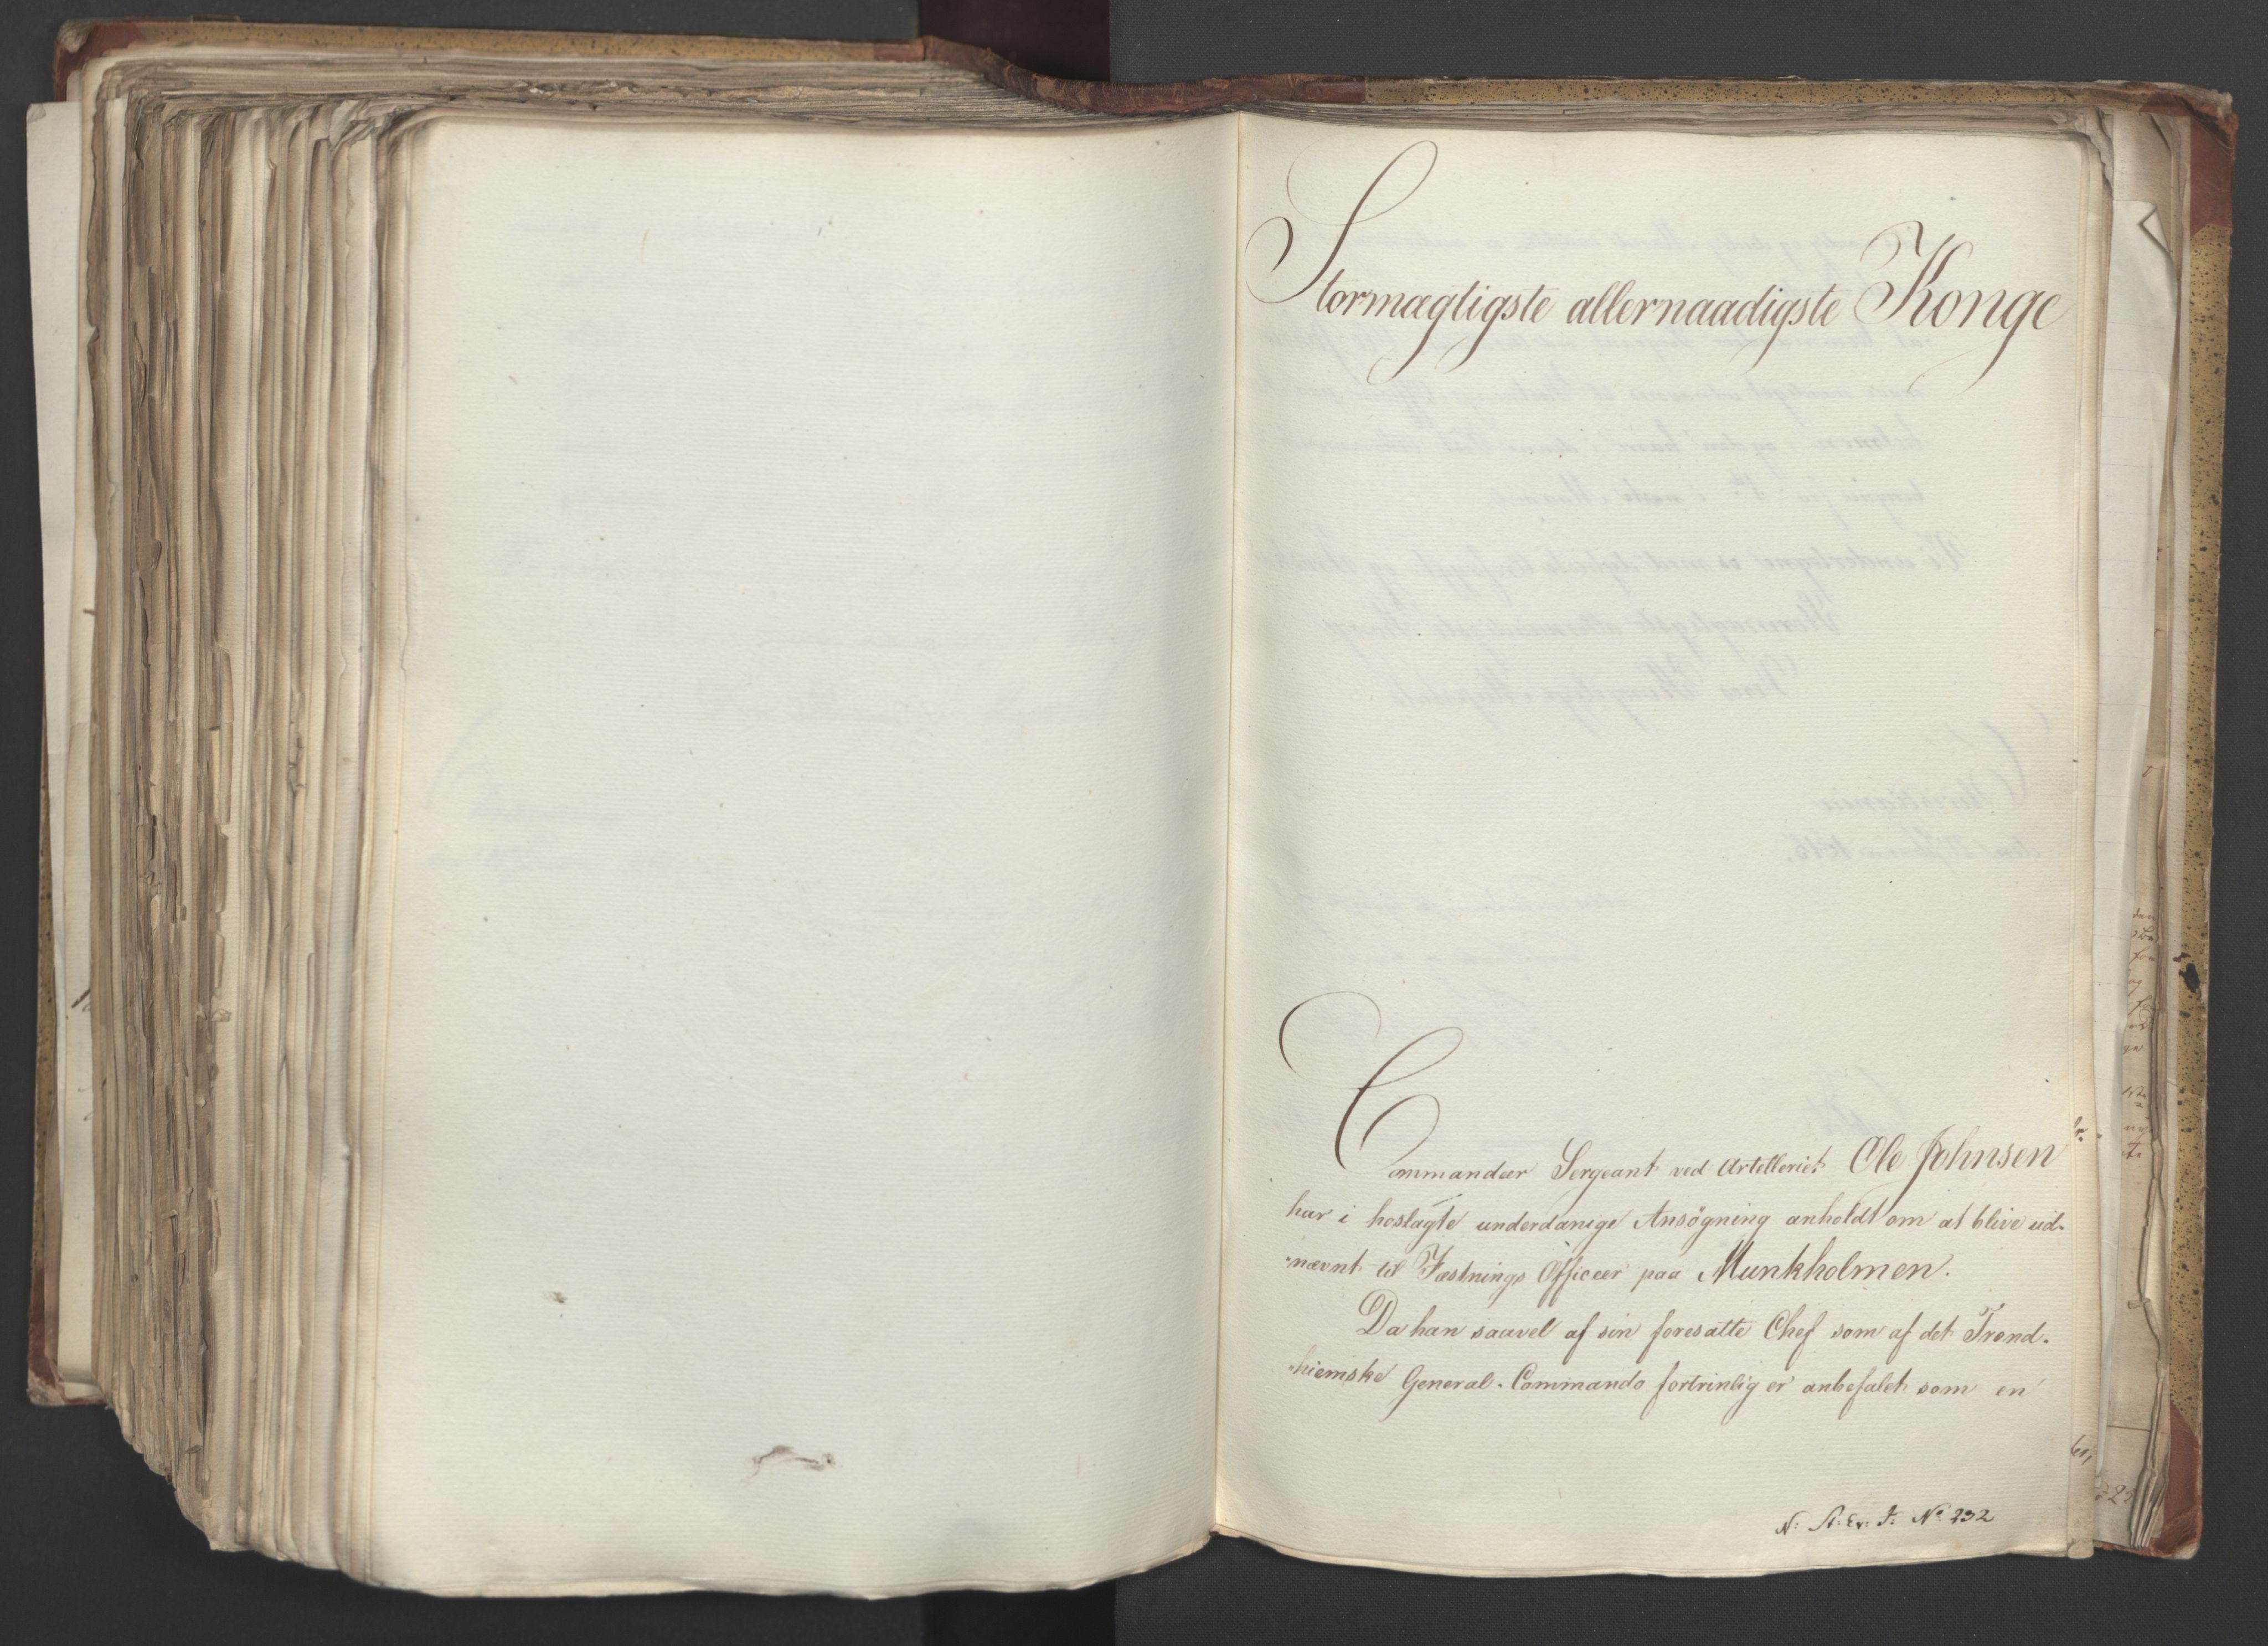 Stormægtigste allernaadigste Konge
Commandeer Sergeant ved Artilleriet Ole Johnsen
har i hoslagte underdanige Ansøgning anholdt om at blive ud-
-nævnt til Fæstnings Officeer paa Munkholmen.
Da han saavel af sin foresatte Chef som af det Trond-
-hiemske General-Commando fortrinlig er anbefalet som en
N: St: Ex: J: No 232